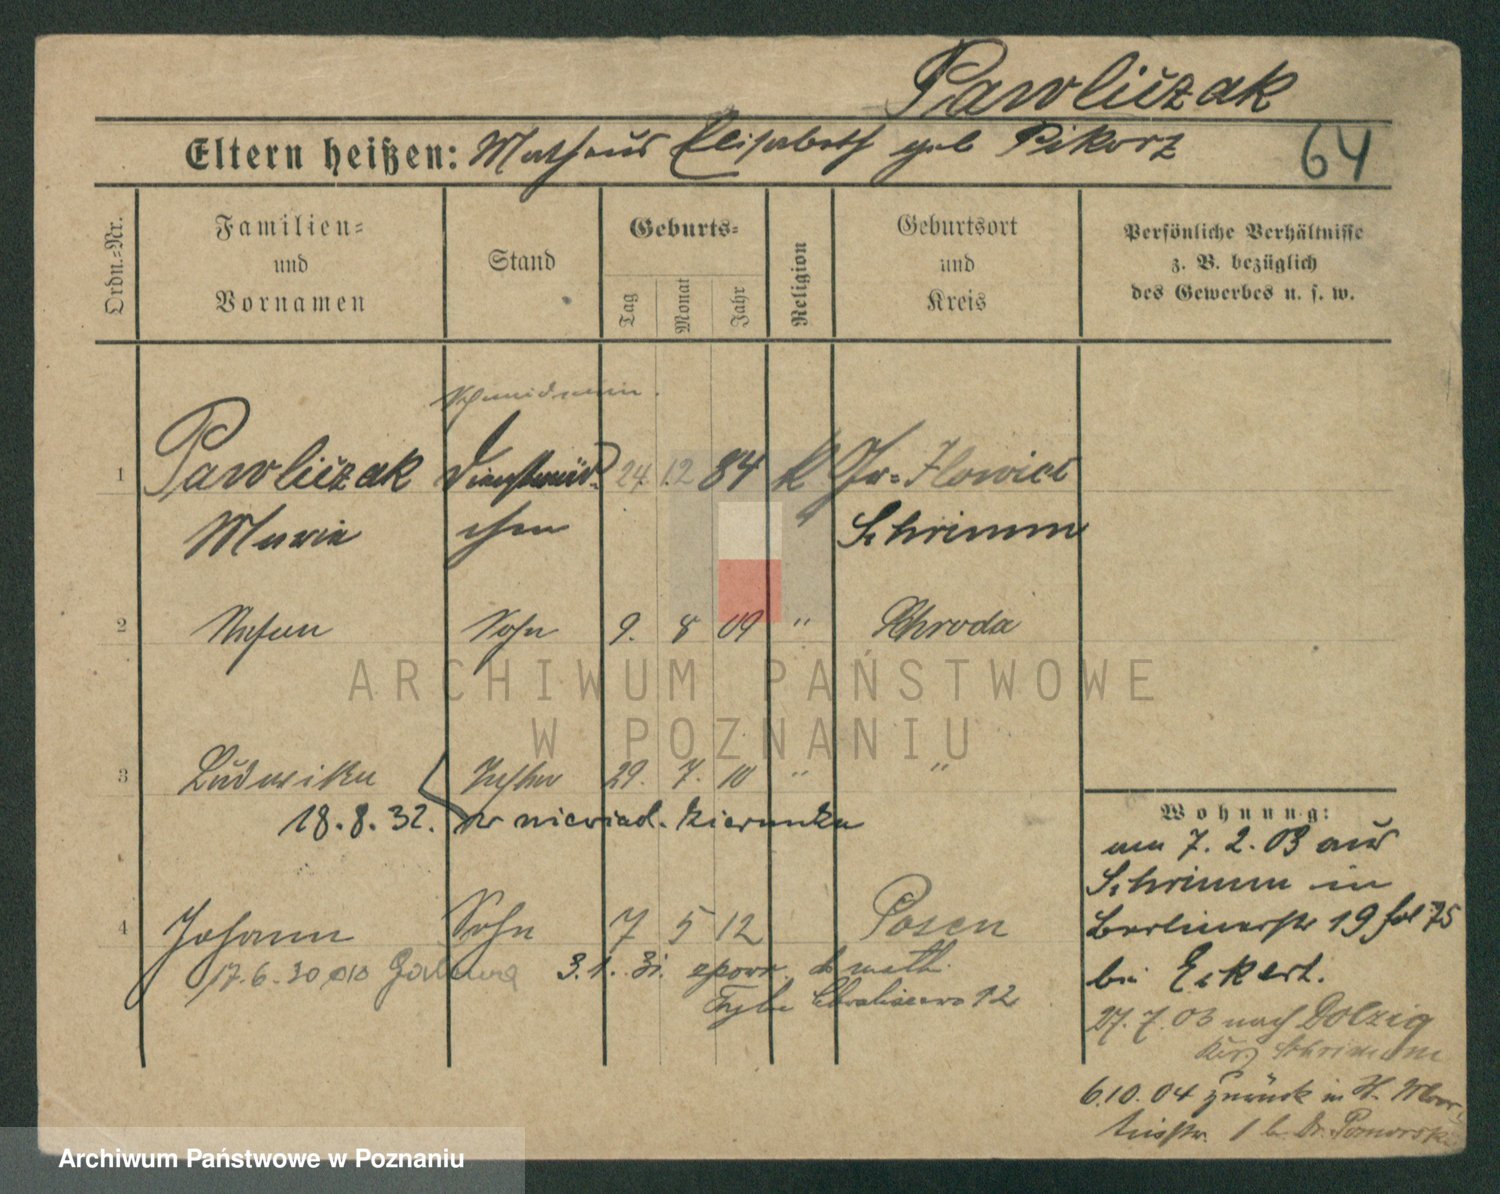 Pawliczak
Eltern heißen: Matheus Elisabeth geb Pikorz
64
Ordn.=Nr.
Familien=
und
Vornamen
Stand
Geburts=
Tag
Monat
Jahr
Religion
Geburtsort
und
Kreis
Persönliche Verhältnisse
z. B. bezüglich
des Gewerbes u. s. w.
1 Pawliczak Dienstmäd= 24 12 84 K Gr=Ilowiec
Maria chen Schrimm
2 Stefan Sohn 9. 8 09 " Schroda
ARCHIWUM PAŃSTWOWE
W POZNANIU
3 Ludwika Tochter 29. 7. 10 " "
18.8.32. w niewiad. kierunku
4 Johann Sohn 7 5 12 Posen
17.6.30 3.1.31.
12
Wohnung:
am 7.2.03 aus
Schrimm in
Berlinerstr 19 fol 75
bei Eckert.
27.7.03 nach Dolzig
Schrimm
6.10.04 zurück in
1 b. Dr. Pomorski
Archiwum Państwowe w Poznaniu